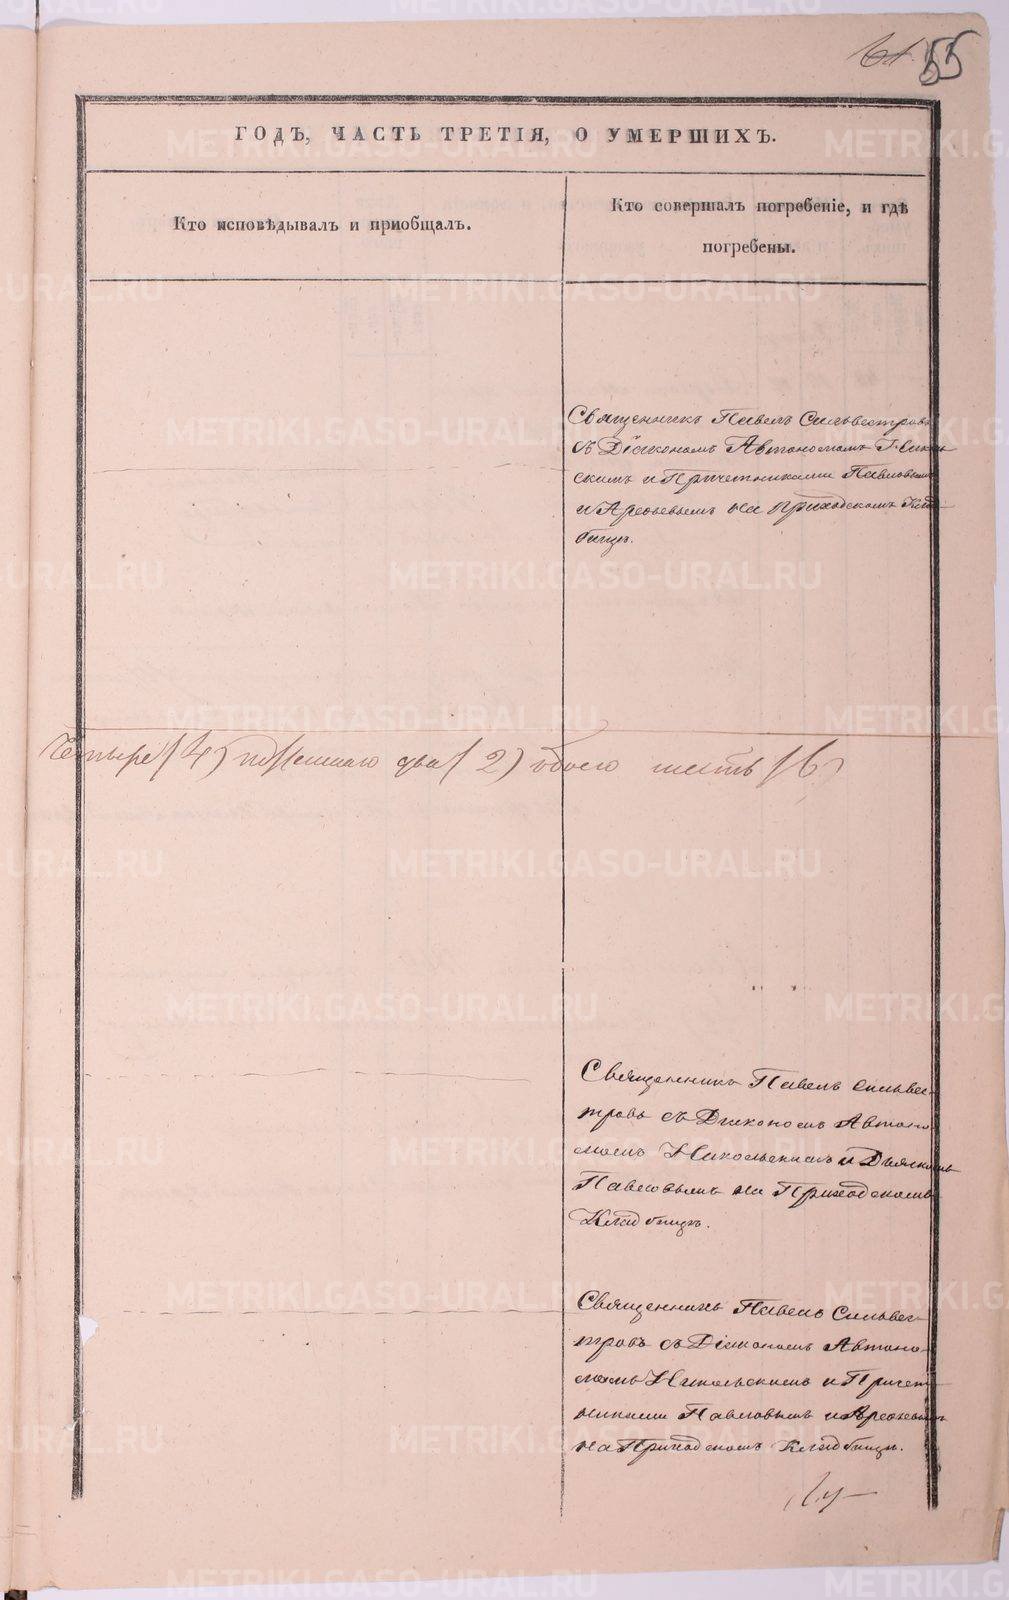 55
ГОДЪ, ЧАСТЬ ТРЕТІЯ, О УМЕРШИХЪ.
Кто исповѣдывалъ и пріобщалъ.
Кто совершалъ погребеніе, и гдѣ
погребены.
Священникъ Павелъ Сильвестровъ
съ Діакономъ Автономомъ
скимъ и Причетниками Павловымъ
и Арефьевымъ на приходскомъ Клад
бищѣ.
Четыре (4) два (2) обоего шесть (6)
Священникъ Павелъ Сильвес-
тровъ съ Діакономъ Автоно
момъ Никольскимъ и Дьячкомъ
Павловымъ на Приходскомъ
Кладбищѣ.
Священникъ Павелъ Сильвес-
тровъ съ Діакономъ Автоно-
момъ Никольскимъ и Причет
никами Павловымъ и Арефьевымъ
на Приходскомъ Кладбищѣ.
METRIKI.GASO-URAL.RU